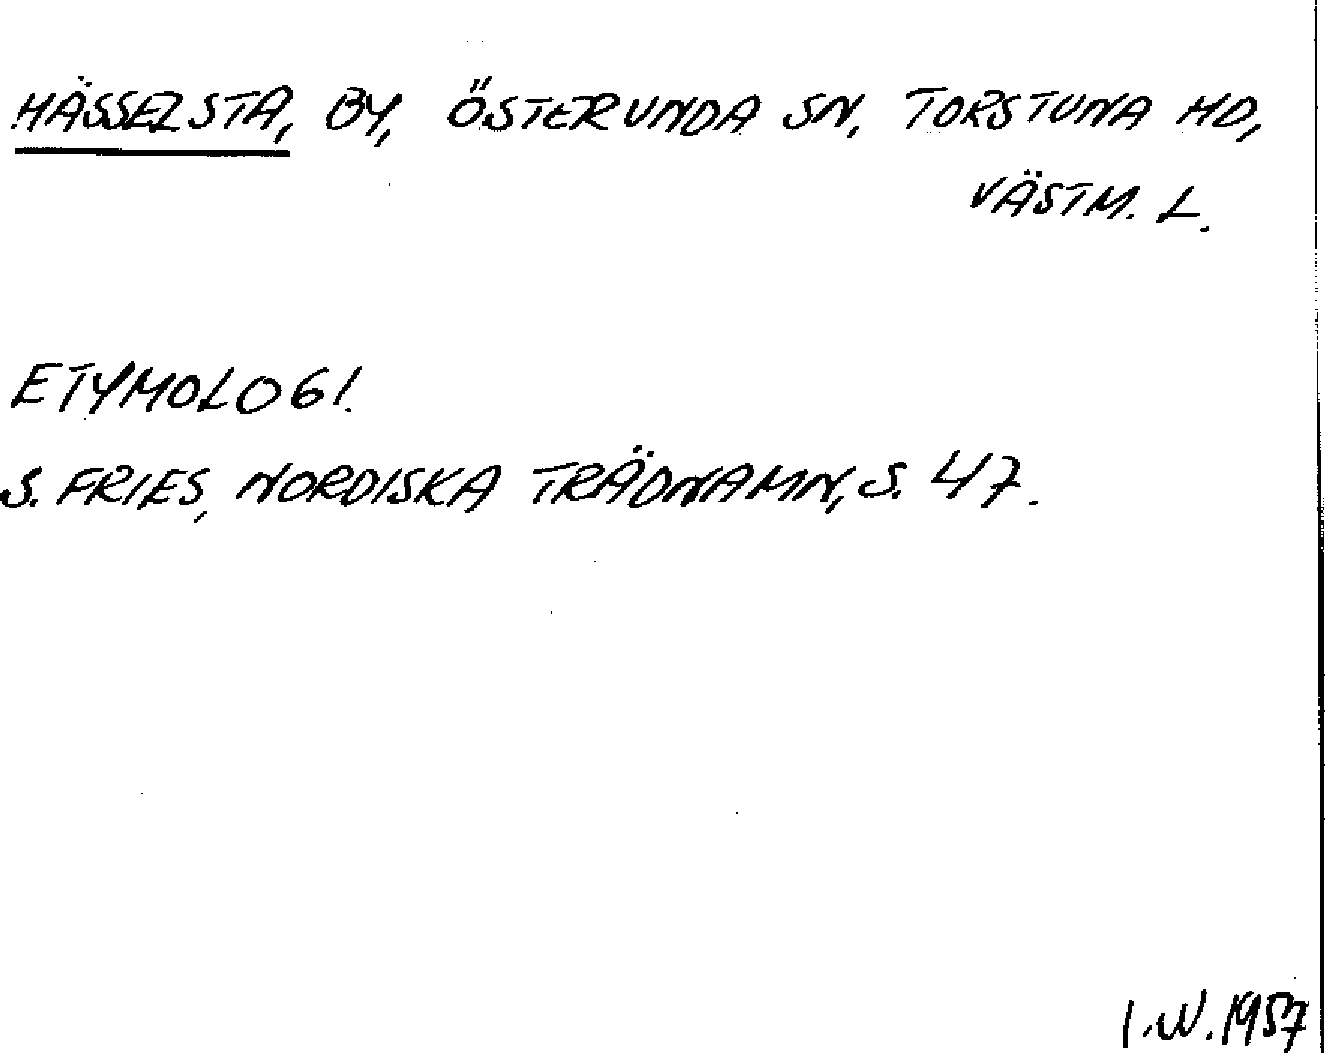 HÄSSELSTA, BY, ÖSTERUNDA SN, TORSTUNA HD,
VÄSTM. L.
ETYMOLOGI.
S. FRIES, NORDISKA TRÄDNAMN, S. 47.
I.W. 1957